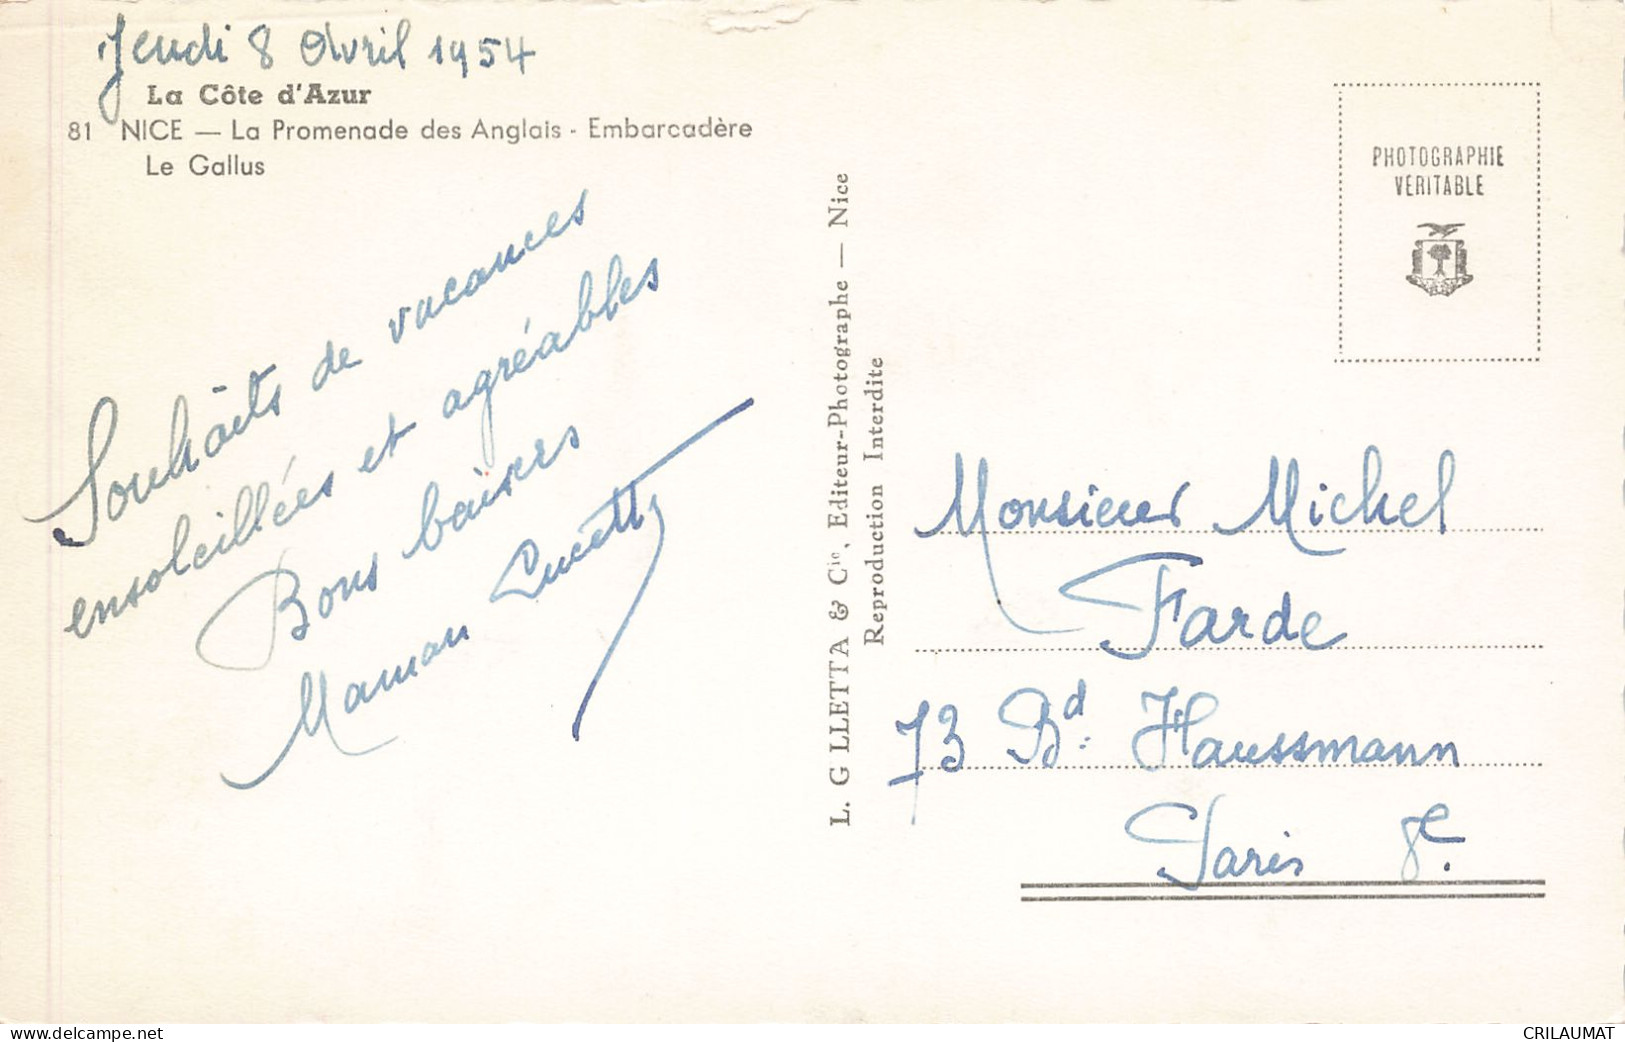 Jeudi 8 Avril 1954
La Côte d'Azur
81 NICE — La Promenade des Anglais - Embarcadère
Le Gallus
Souhaîts de vacances
ensoleillées et agréables
Bons baisers
Maman Lucette
L. G LLETTA & Cie, Editeur-Photographe — Nice
Reproduction Interdite
PHOTOGRAPHIE
VERITABLE
Monsieur Michel
Farde
73 Bd. Haussmann
Paris 8e.
www.delcampe.net
CRILAUMAT